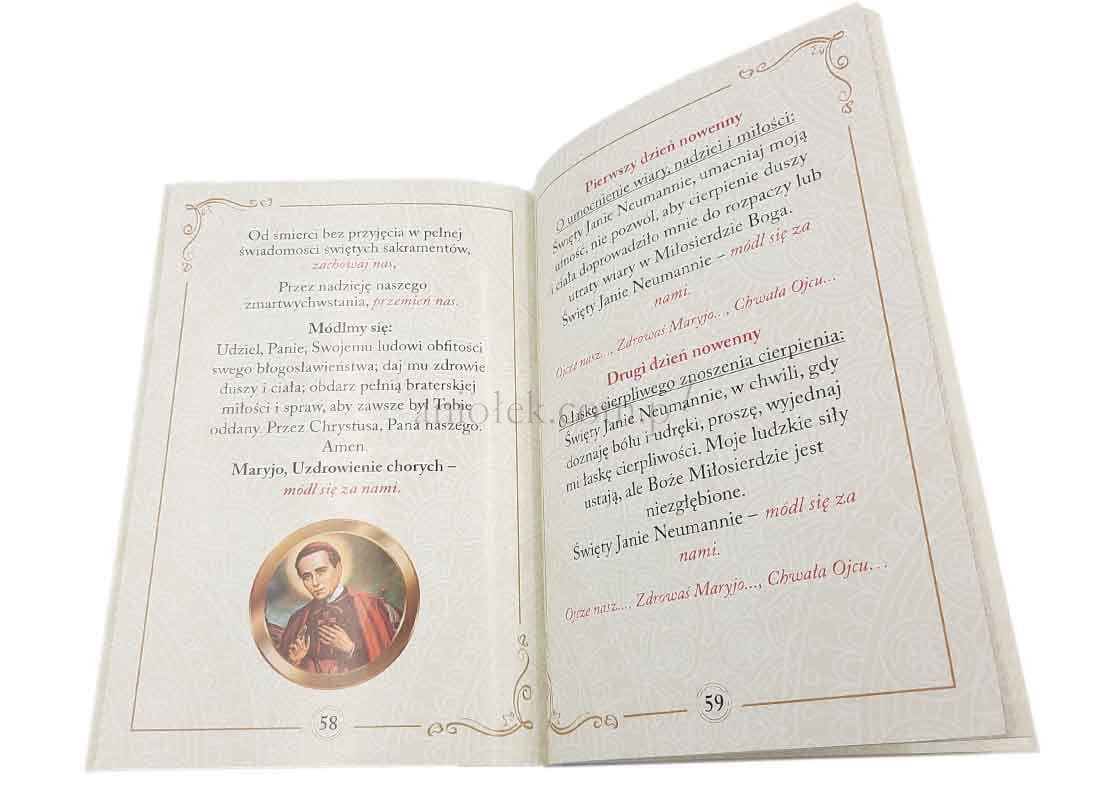 Od śmierci bez przyjęcia w pełnej
świadomości świętych sakramentów,
zachowaj nas,
Przez nadzieję naszego
zmartwychwstania, przemień nas.
Módlmy się:
Udziel, Panie, Swojemu ludowi obfitości
swego błogosławieństwa; daj mu zdrowie
duszy i ciała; obdarz pełnią braterskiej
miłości i spraw, aby zawsze był Tobie
oddany. Przez Chrystusa, Pana naszego.
Amen.
Maryjo, Uzdrowienie chorych –
módl się za nami.
58
Pierwszy dzień nowenny
O umocnienie wiary, nadziei i miłości:
Święty Janie Neumannie, umacniaj moją
ufność, nie pozwól, aby cierpienie duszy
i ciała doprowadziło mnie do rozpaczy lub
utraty wiary w Miłosierdzie Boga.
Święty Janie Neumannie – módl się za
nami.
Ojcze nasz..., Zdrowaś Maryjo..., Chwała Ojcu...
Drugi dzień nowenny
O łaskę cierpliwego znoszenia cierpienia:
Święty Janie Neumannie, w chwili, gdy
doznaję bólu i udręki, proszę, wyjednaj
mi łaskę cierpliwości. Moje ludzkie siły
ustają, ale Boże Miłosierdzie jest
niezgłębione.
Święty Janie Neumannie – módl się za
nami.
Ojcze nasz..., Zdrowaś Maryjo..., Chwała Ojcu...
59